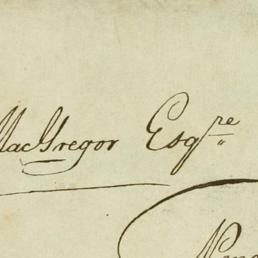 MacGregor Esqre